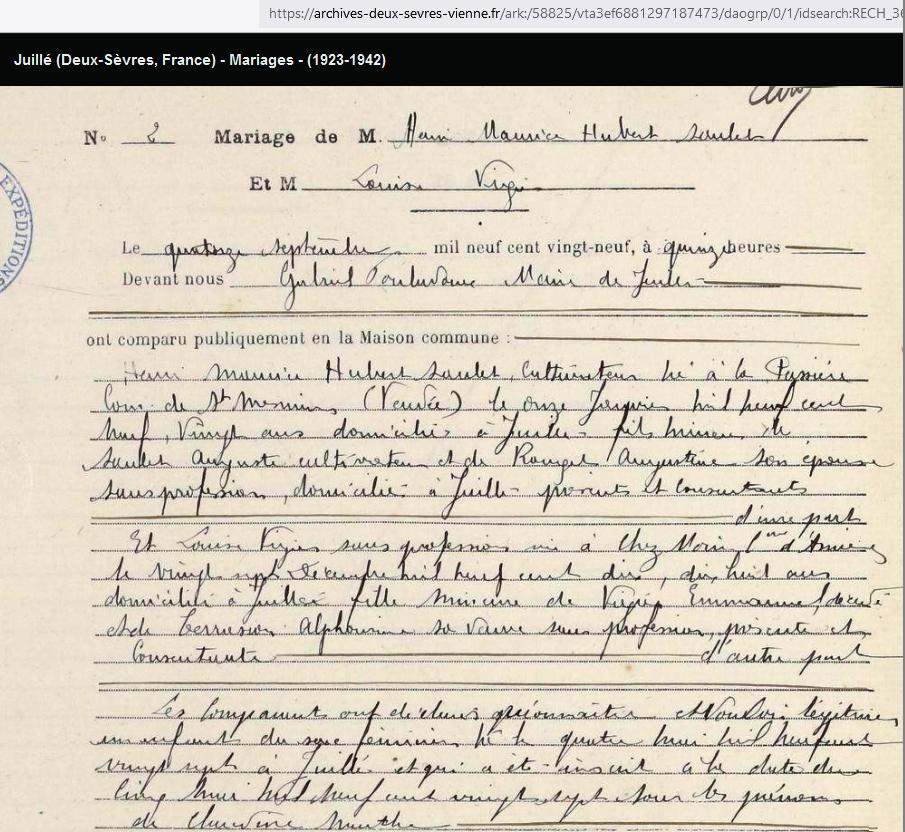 https://archives-deux-sevres-vienne.fr/ark:/58825/vta3ef6881297187473/daogrp/0/1/idsearch:RECH_36
Juillé (Deux-Sèvres, France) - Mariages - (1923-1942)
EXPÉDITIONS
No 2 Mariage de M. Henri Maurice Hubert
Et M Louise Vigier
Le quatorze septembre mil neuf cent vingt-neuf, à quinze heures
Devant nous Gabriel Maire de Juillé
ont comparu publiquement en la Maison commune :
Henri Maurice Hubert cultivateur né à la
Com. de St Mesmin (Vendée) le onze Janvier mil neuf cent
neuf, Vingt ans domicilié à Juillé fils mineur de
Auguste cultivateur et de Augustine son épouse
sans profession, domiciliés à Juillé présents et Consentants
d'une part
Et Louise Vigier sans profession née à Chez Morin
le vingt sept Décembre mil neuf cent dix, dix huit ans
domiciliée à Juillé fille mineure de Vigier Emmanuel décédé
et de Alphonsine sa veuve sans profession, présente et
Consentante d'autre part
Les Comparants ont déclaré reconnaître et Vouloir légitimer
un enfant du sexe féminin né le quatre mai mil neuf cent
vingt sept à Juillé et qui a été inscrit à la date du
cinq mai mil neuf cent vingt sept sous les prénoms
de